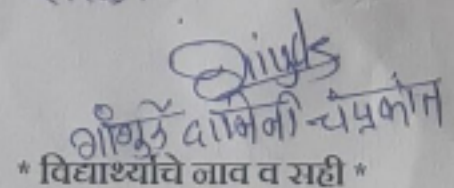 गांगुर्डे दामिनी चंद्रकांत
* विद्यार्थ्याचे नाव व सही *